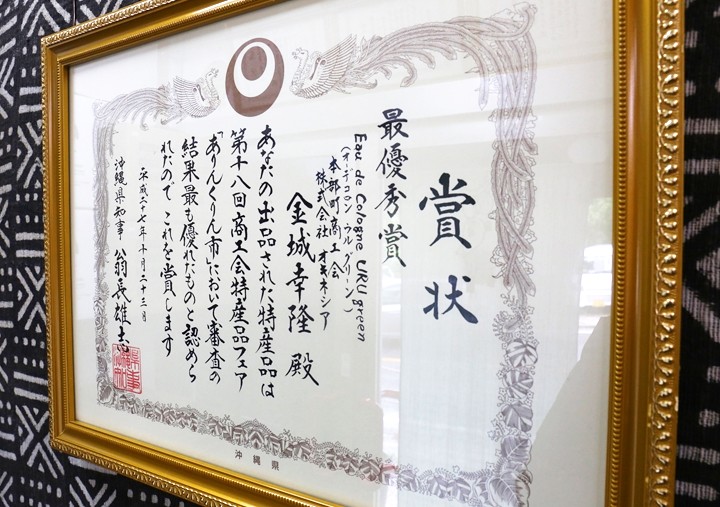 賞状
最優秀賞
Eau de Cologne URU green
(オーデコロン ウル グリーン)
本部町商工会
株式会社オキネシア
金城幸隆 殿
あなたの出品された特産品は
第十八回商工会特産品フェア
「ありんくりん市」において審査の
結果最も優れたものと認めら
れたので これを賞します
平成二十七年十月二十三日
沖縄県知事 翁長雄志
沖縄県